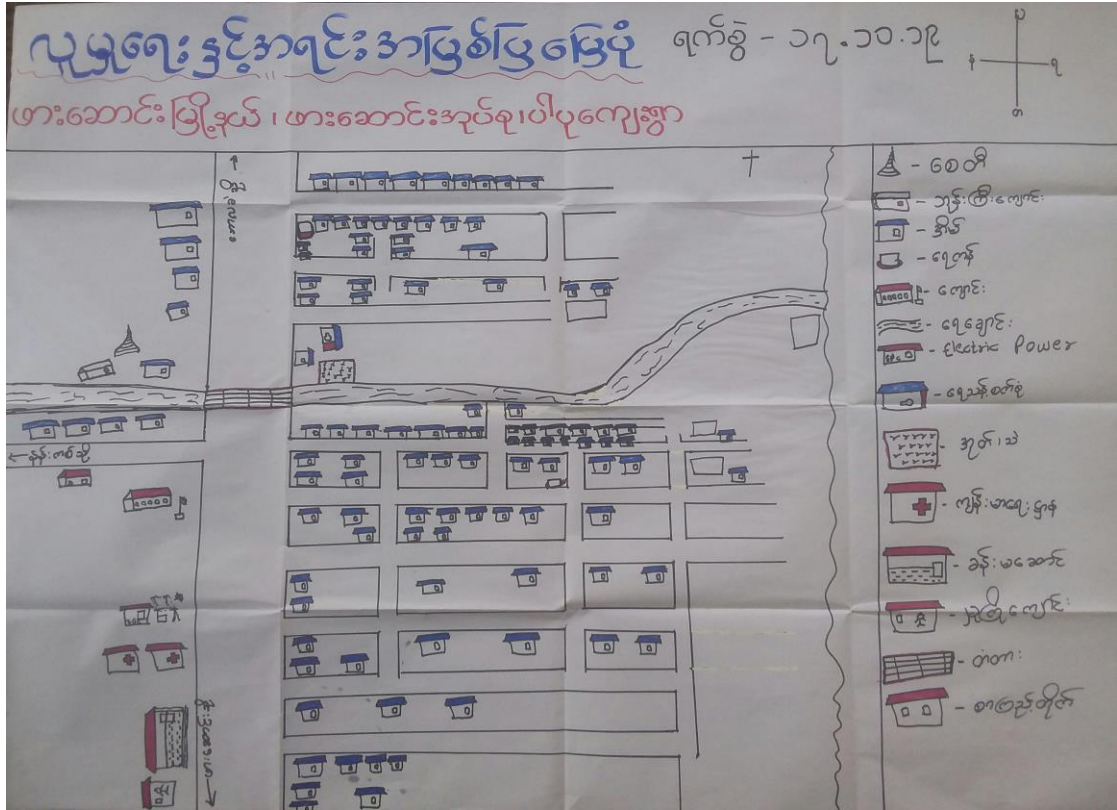 လူမှုရေးနှင့်အရင်းအမြစ်ပြမြေပုံ ရက်စွဲ - ၁၇.၁၀.၁၉
ဖားဆောင်းမြို့နယ်၊ ဖားဆောင်းအုပ်စု၊ ပါပုကျေးရွာ
- စေတီ
- ဘုန်းကြီးကျောင်း
- အိမ်
- ရေကန်
- ကျောင်း
- ရေချောင်း
- Electric Power
- ကျန်းမာရေးဌာန
- ခန်းမဆောင်
- မူကြိုကျောင်း
- တံတား
- စာကြည့်တိုက်